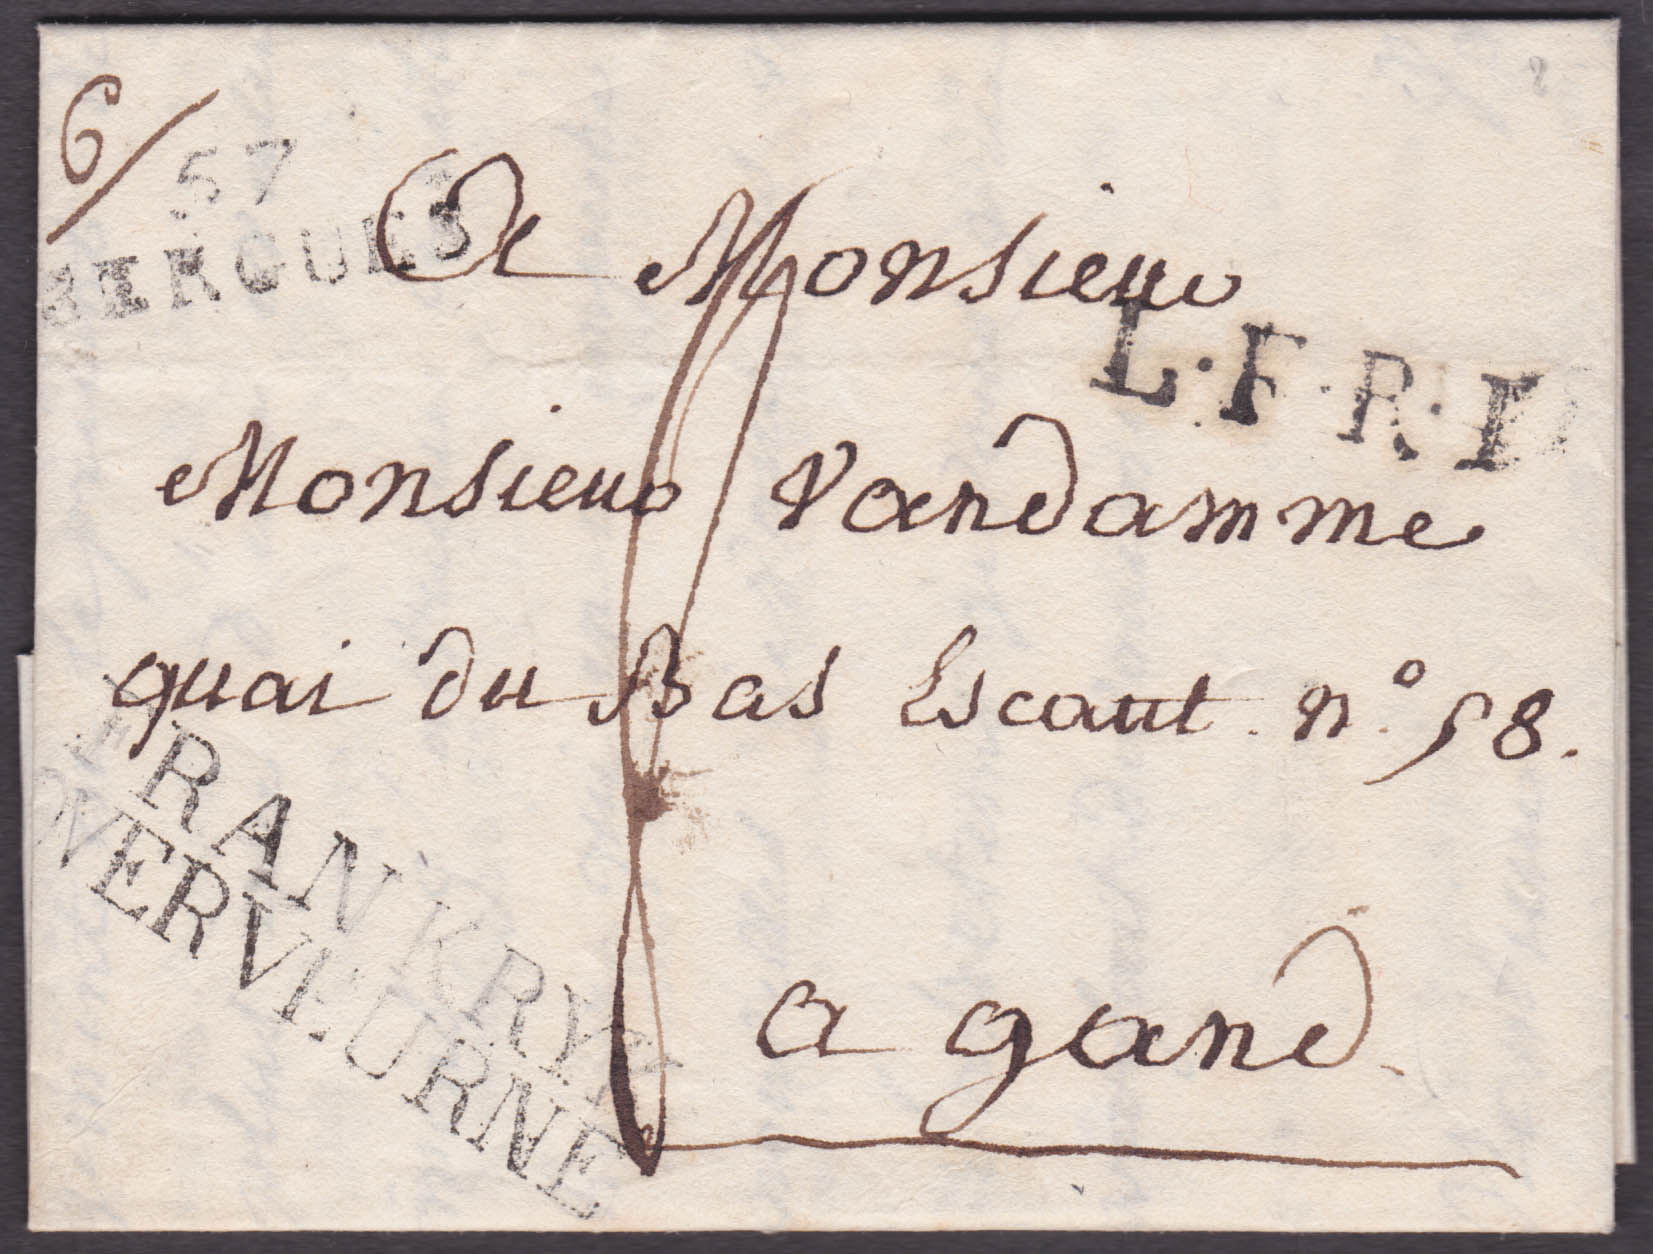 6/
57
BERGUES
A Monsieur
L.F.R.1
Monsieur Vandamme
quai du Bas Escaut . n.º 58.
FRANKRYK
OVER VEURNE
a gand